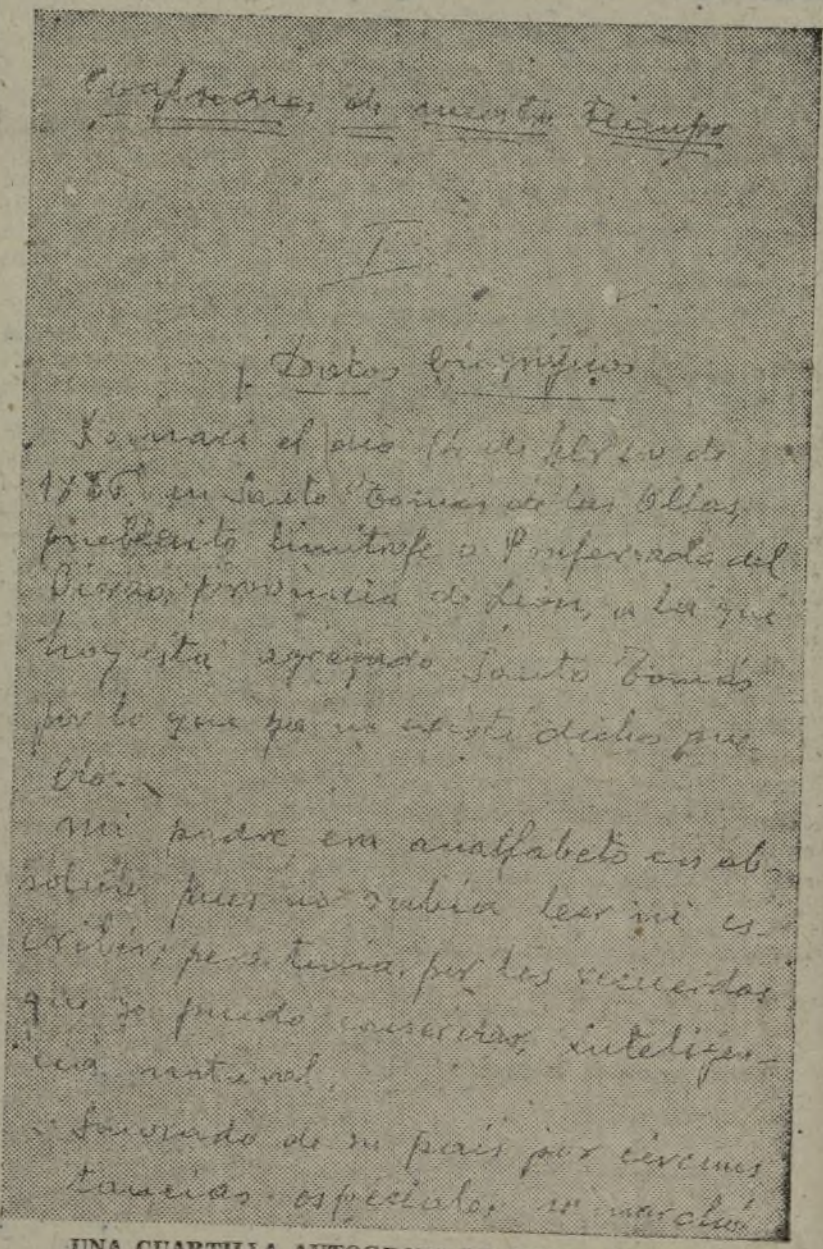 de nuestro tiempo
I
Datos biográficos
el día de de
en Santo Tomás de las Ollas,
pueblecito limítrofe a Ponferrada del
Bierzo, provincia de León, a la que
hoy está agregado Santo Tomás
por lo que ya no existe dicho pue-
blo.
Mi padre era analfabeto en ab-
soluto pues no sabía leer ni es-
cribir; pero tenía, por los recuerdos
que yo puedo conservar, inteligen-
cia natural.
de su país por circuns
tancias especiales, se marchó
UNA CUARTILLA